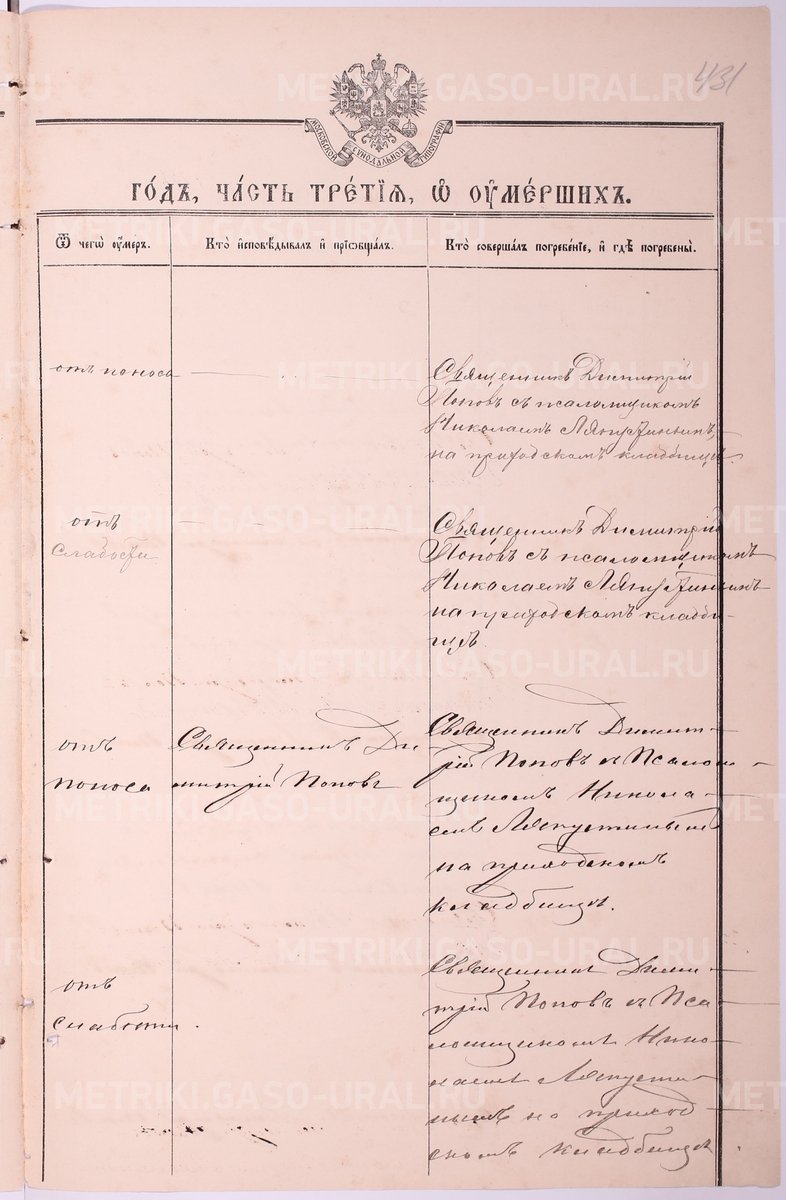 431
МОСКОВСКОЙ СѴНОДАЛЬНОЙ ТИПОГРАФІИ
ГО́ДЪ, ЧА́СТЬ ТРЕ́ТІѦ, Ѡ ОУМЕ́РШИХЪ.
Ѿ чегѡ̀ оу́меръ.
Кто̀ и҆сповѣ́дывалъ и҆ прїѡбща́лъ.
Кто̀ соверша́лъ погребе́нїе, и҆ гдѣ̀ погребены̀.
отъ поноса
Священникъ Димитрій
Поповъ съ псаломщикомъ
Николаемъ Ляпустинымъ,
на приходскомъ кладбищѣ.
отъ
слабости
Священникъ Димитрій
Поповъ съ псаломщикомъ
Николаемъ Ляпустинымъ
на приходскомъ кладби-
щѣ.
отъ
поноса
Священникъ Ди
митрій Поповъ
Священникъ Димит-
рій Поповъ съ Псалом-
щикомъ Никола-
емъ Ляпустинымъ
на приходскомъ
кладбищѣ.
отъ
слабости.
Священникъ Дими-
трій Поповъ съ Пса-
ломщикомъ Нико-
лаемъ Ляпусти-
нымъ на приход-
скомъ кладбищѣ
METRIKI.GASO-URAL.RU